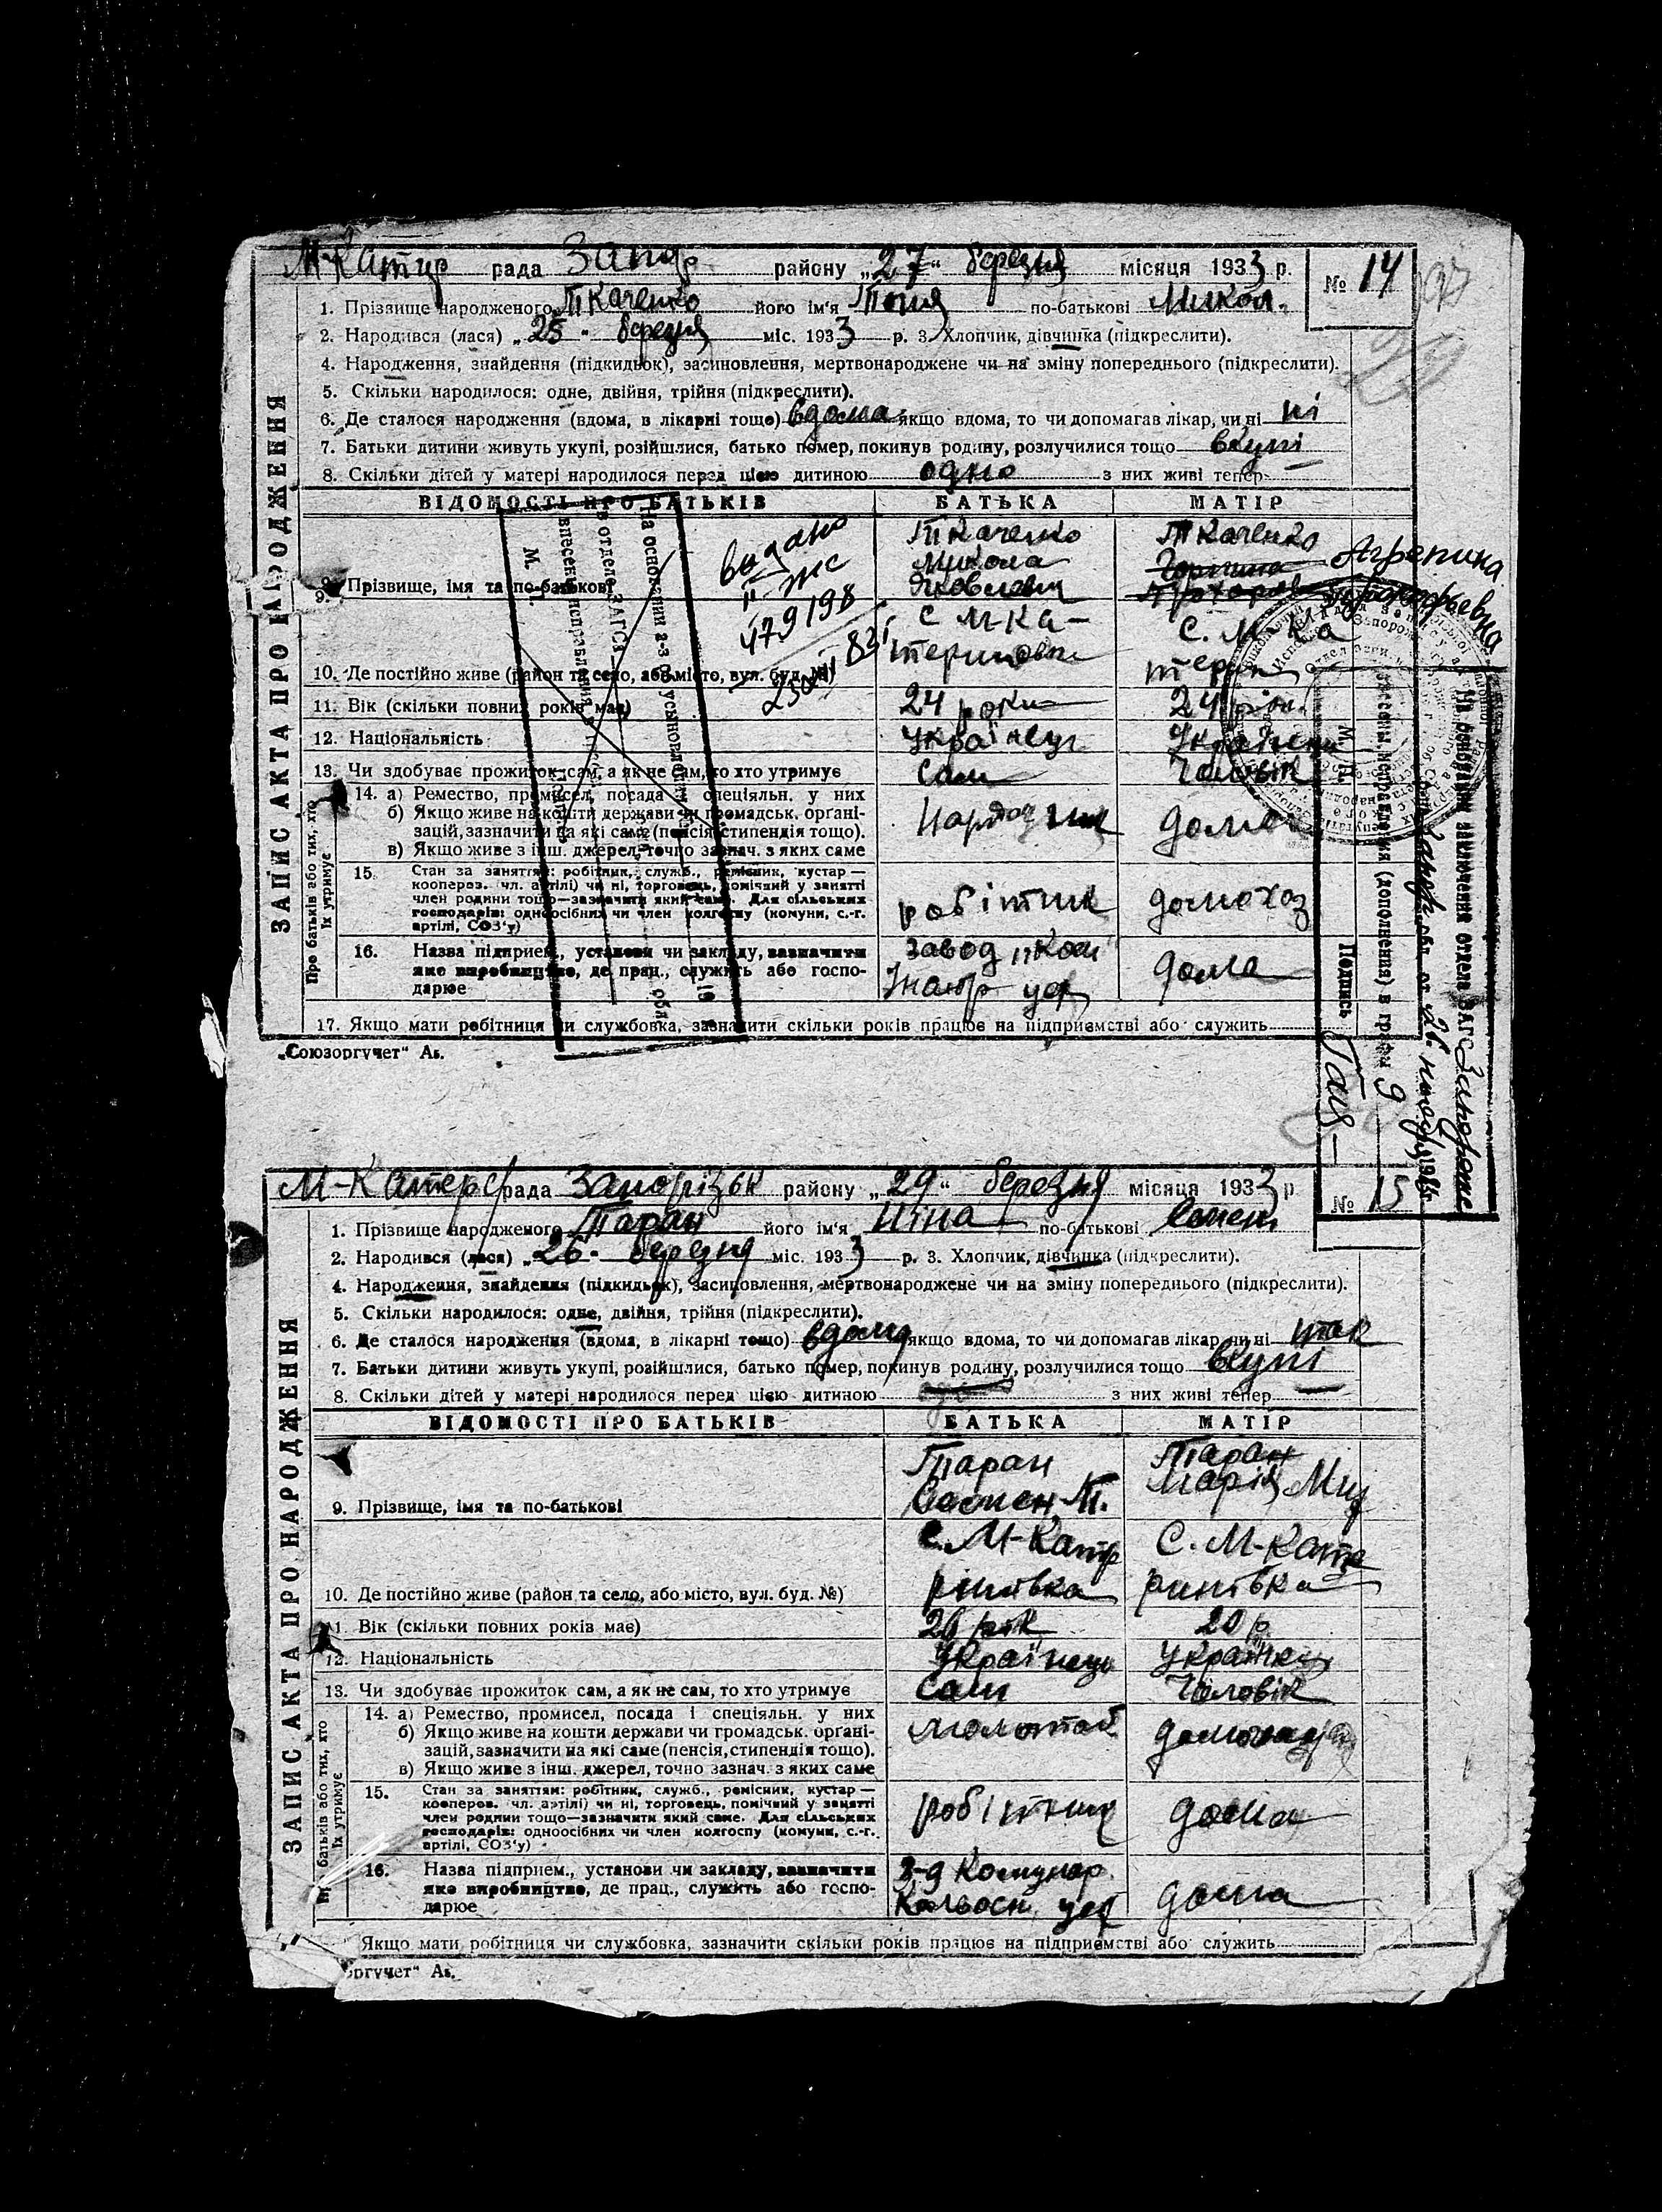 М-Катер рада Запор району „27“ березня місяця 1933 р. № 14
1. Прізвище народженого Ткаченко його ім'я Тоня по-батькові Микол.
2. Народився (лася) „25“ березня міс. 1933 р. 3. Хлопчик, дівчинка (підкреслити).
4. Народження, знайдення (підкидьок), засиновлення, мертвонароджене чи на зміну попереднього (підкреслити).
5. Скільки народилося: одне, двійня, трійня (підкреслити).
6. Де сталося народження (вдома, в лікарні тощо) вдома якщо вдома, то чи допомагав лікар, чи ні ні
7. Батьки дитини живуть укупі, розійшлися, батько помер, покинув родину, розлучилися тощо вкупі
8. Скільки дітей у матері народилося перед цією дитиною одно з них живі тепер —
ЗАПИС АКТА ПРО НАРОДЖЕННЯ
ВІДОМОСТІ ПРО БАТЬКІВ БАТЬКА МАТІР
9. Прізвище, імя та по-батькові
Ткаченко
Микола
Яковлевич
Ткаченко
Агрепина
видано
II-жс
479198
10. Де постійно живе (район та село, або місто, вул. буд. №)
с М-Ка-
териновка
с. М-Ка
терин
11. Вік (скільки повних років має) 24 роки 24 рік.
12. Національність Українець Українка
13. Чи здобуває прожиток сам, а як не сам, то хто утримує сам Чоловік
Про батьків або тих, хто
їх утримує
14. а) Ремество, промисел, посада і спеціяльн. у них
б) Якщо живе на кошти держави чи громадськ. органі-
зацій, зазначити на які саме (пенсія, стипендія тощо).
в) Якщо живе з інш. джерел, точно зазнач. з яких саме
дома
15. Стан за заняттям: робітник, служб., ремісник, кустар —
кооперов. чл. артілі) чи ні, торговець, помічний у занятті
член родини тощо—зазначити який саме. Для сільських
господарів: одноосібних чи член колгоспу (комуни, с.-г.
артілі, СОЗ'у)
робітник домохоз
16. Назва підприєм., установи чи закладу, зазначити
яке виробництво, де прац., служить або госпо-
дарює
завод „Ком
цех
дома
17. Якщо мати робітниця чи службовка, зазначити скільки років працює на підприємстві або служить
„Союзоргучет“ Ав.
На основании з-з об усыновлении
в отделе ЗАГСа
внесены исправления
М. П.
На основании заключения отдела ЗАГС Запорожс
внесены исправления (дополнения) в графы 9
М. П. Подпись
М-Катер рада Запорізьк району „29“ березня місяця 1933 р № 15
1. Прізвище народженого Таран його ім'я Ніна по-батькові Семен
2. Народився (лася) „26“ березня міс. 1933 р. 3. Хлопчик, дівчинка (підкреслити).
4. Народження, знайдення (підкидьок), засиновлення, мертвонароджене чи на зміну попереднього (підкреслити).
5. Скільки народилося: одне, двійня, трійня (підкреслити).
6. Де сталося народження (вдома, в лікарні тощо) вдома якщо вдома, то чи допомагав лікар, чи ні так
7. Батьки дитини живуть укупі, розійшлися, батько помер, покинув родину, розлучилися тощо вкупі
8. Скільки дітей у матері народилося перед цією дитиною з них живі тепер —
ЗАПИС АКТА ПРО НАРОДЖЕННЯ
ВІДОМОСТІ ПРО БАТЬКІВ БАТЬКА МАТІР
9. Прізвище, імя та по-батькові
Таран
Семен Т.
Таран
Марія
10. Де постійно живе (район та село, або місто, вул. буд. №)
с. М-Кате
ринівка
С. М-Кате
ринівка
11. Вік (скільки повних років має) 26 рік 20 р
12. Національність Українець Українка
13. Чи здобуває прожиток сам, а як не сам, то хто утримує сам Чоловік
батьків або тих, хто
їх утримує
14. а) Ремество, промисел, посада і спеціяльн. у них
б) Якщо живе на кошти держави чи громадськ. органі-
зацій, зазначити на які саме (пенсія, стипендія тощо).
в) Якщо живе з інш. джерел, точно зазнач. з яких саме
15. Стан за заняттям: робітник, служб., ремісник, кустар —
кооперов. чл. артілі) чи ні, торговець, помічний у занятті
член родини тощо—зазначити який саме. Для сільських
господарів: одноосібних чи член колгоспу (комуни, с.-г.
артілі, СОЗ'у)
робітник дома
16. Назва підприєм., установи чи закладу, зазначити
яке виробництво, де прац., служить або госпо-
дарює
З-д Комунар
цех
дома
Якщо мати робітниця чи службовка, зазначити скільки років працює на підприємстві або служить
оргучет“ Ав.